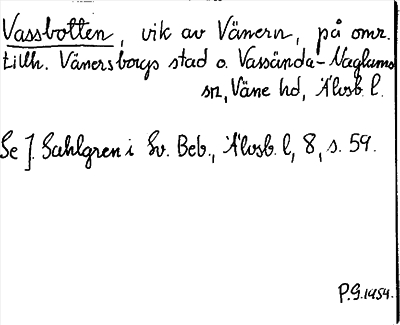 Vassbotten, vik av Vänern, på omr.
tillh. Vänersborgs stad o. Vassända-Naglums
sn, Väne hd, Älvsb. l.
Se J. Sahlgren i Sv. Beb., Älvsb. l, 8, s. 59.
P.G. 1954.